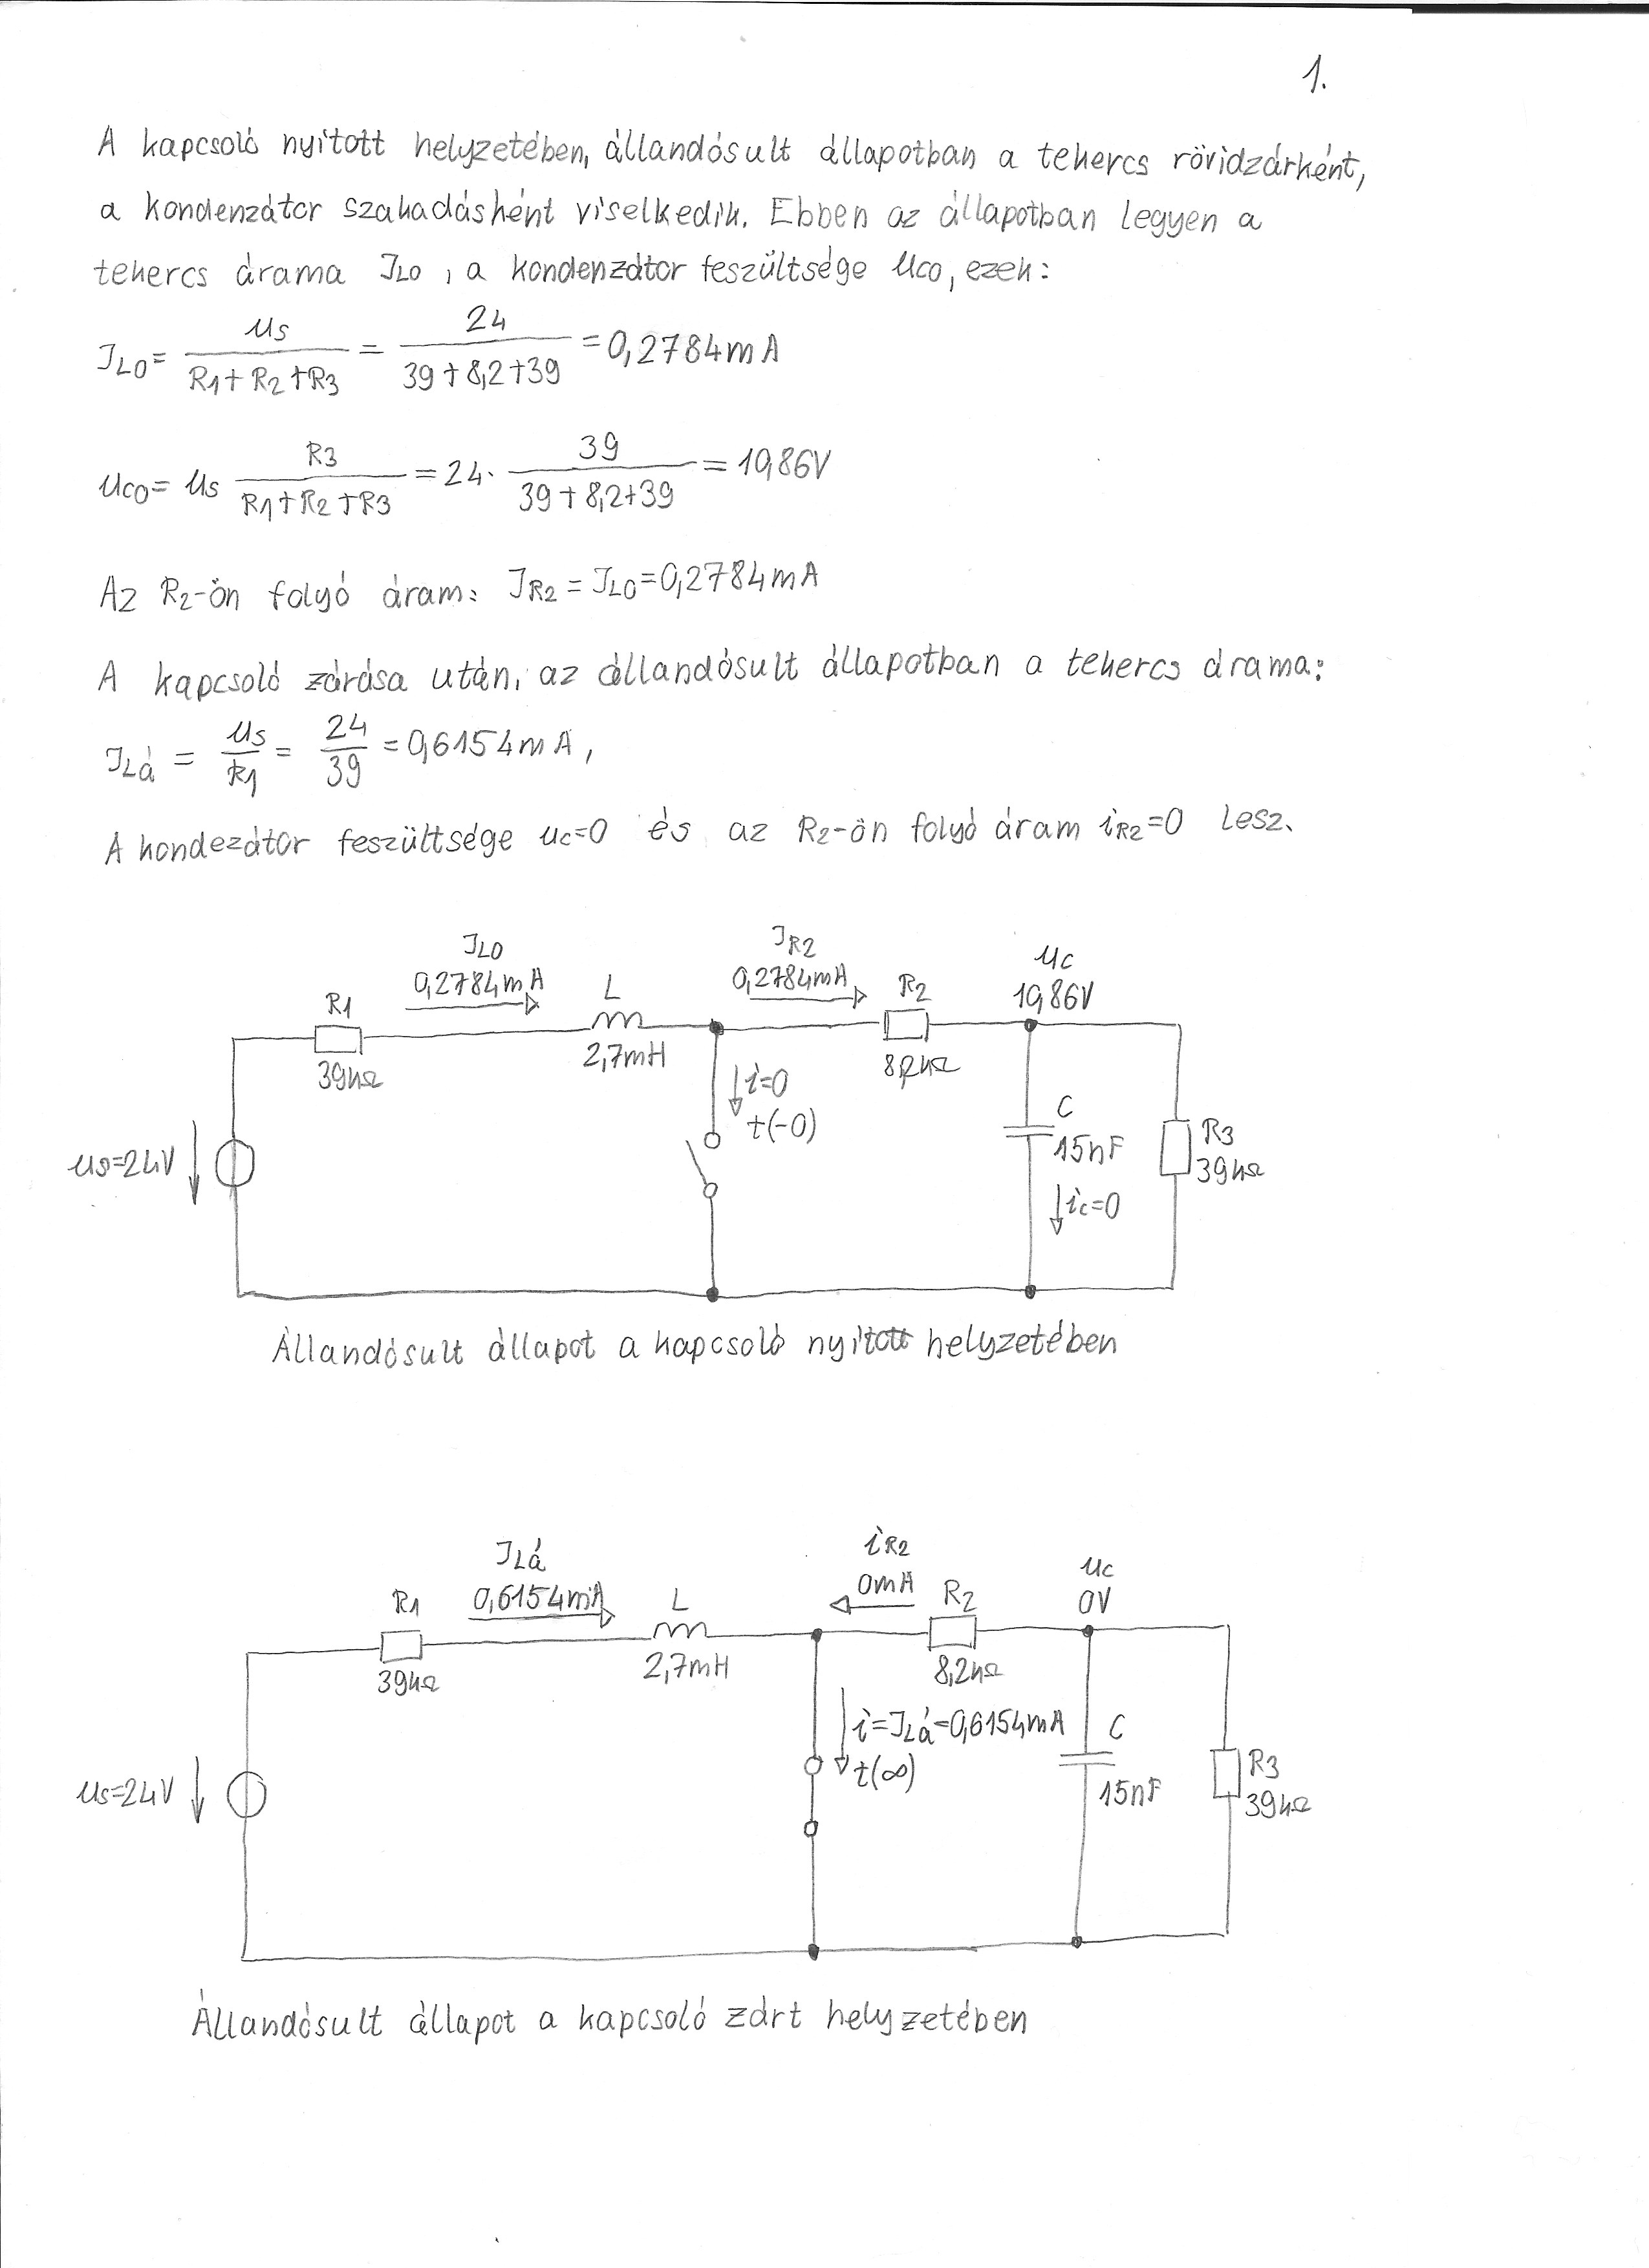 1.
A kapcsoló nyitott helyzetében, állandósult állapotban a tekercs rövidzárként,
a kondenzátor szakadásként viselkedik. Ebben az állapotban legyen a
tekercs árama IL0, a kondenzátor feszültsége uC0, ezek:
IL0 = us / (R1+R2+R3) = 24 / (39+8,2+39) = 0,2784mA
uC0 = us R3 / (R1+R2+R3) = 24· 39 / (39+8,2+39) = 10,86V
Az R2-ön folyó áram: IR2 = IL0 = 0,2784mA
A kapcsoló zárása után, az állandósult állapotban a tekercs árama:
ILá = us / R1 = 24 / 39 = 0,6154mA,
A kondezátor feszültsége uc=0 és az R2-ön folyó áram iR2=0 lesz.
IL0
0,2784mA
IR2
0,2784mA
uc
10,86V
R1
39kΩ
L
2,7mH
R2
8,2kΩ
i=0
t(-0)
C
15nF
ic=0
R3
39kΩ
us=24V
Állandósult állapot a kapcsoló nyitott helyzetében
ILá
0,6154mA
iR2
0mA
uc
0V
R1
39kΩ
L
2,7mH
R2
8,2kΩ
i=ILá=0,6154mA
t(∞)
C
15nF
R3
39kΩ
us=24V
Állandósult állapot a kapcsoló zárt helyzetében